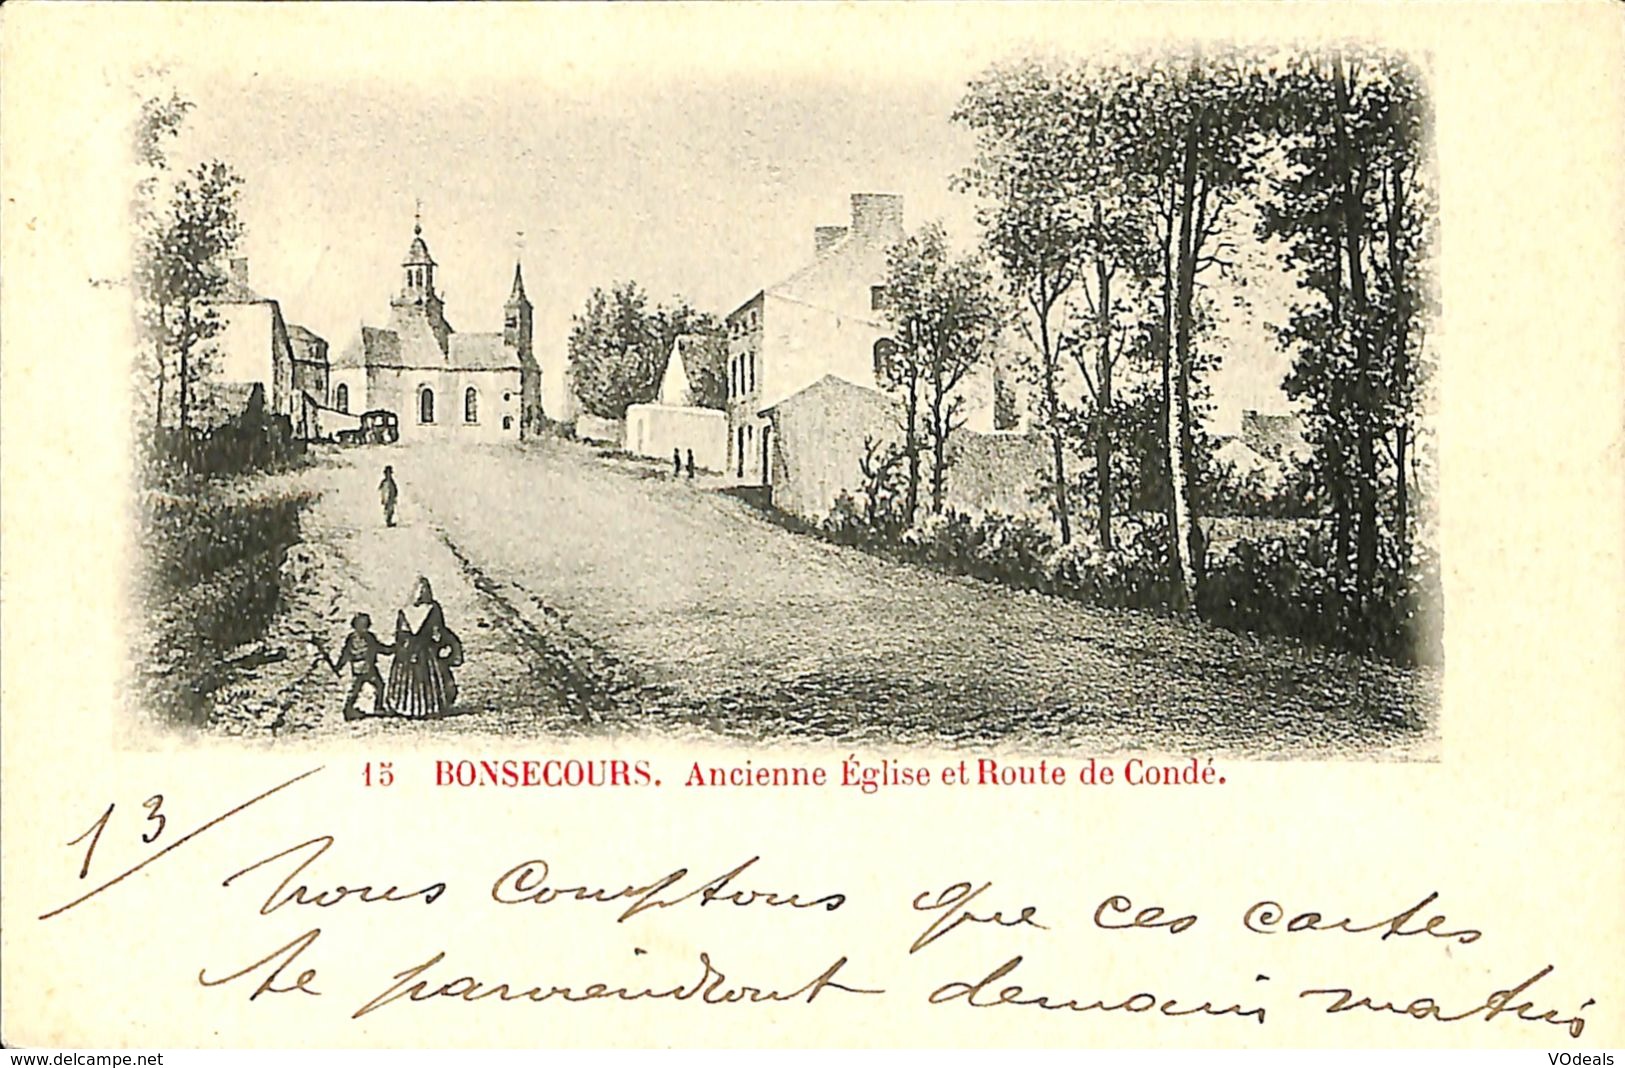 15 BONSECOURS. Ancienne Église et Route de Condé.
13/
Nous comptons que ces cartes
te parviendront demain matin
www.delcampe.net
VOdeals